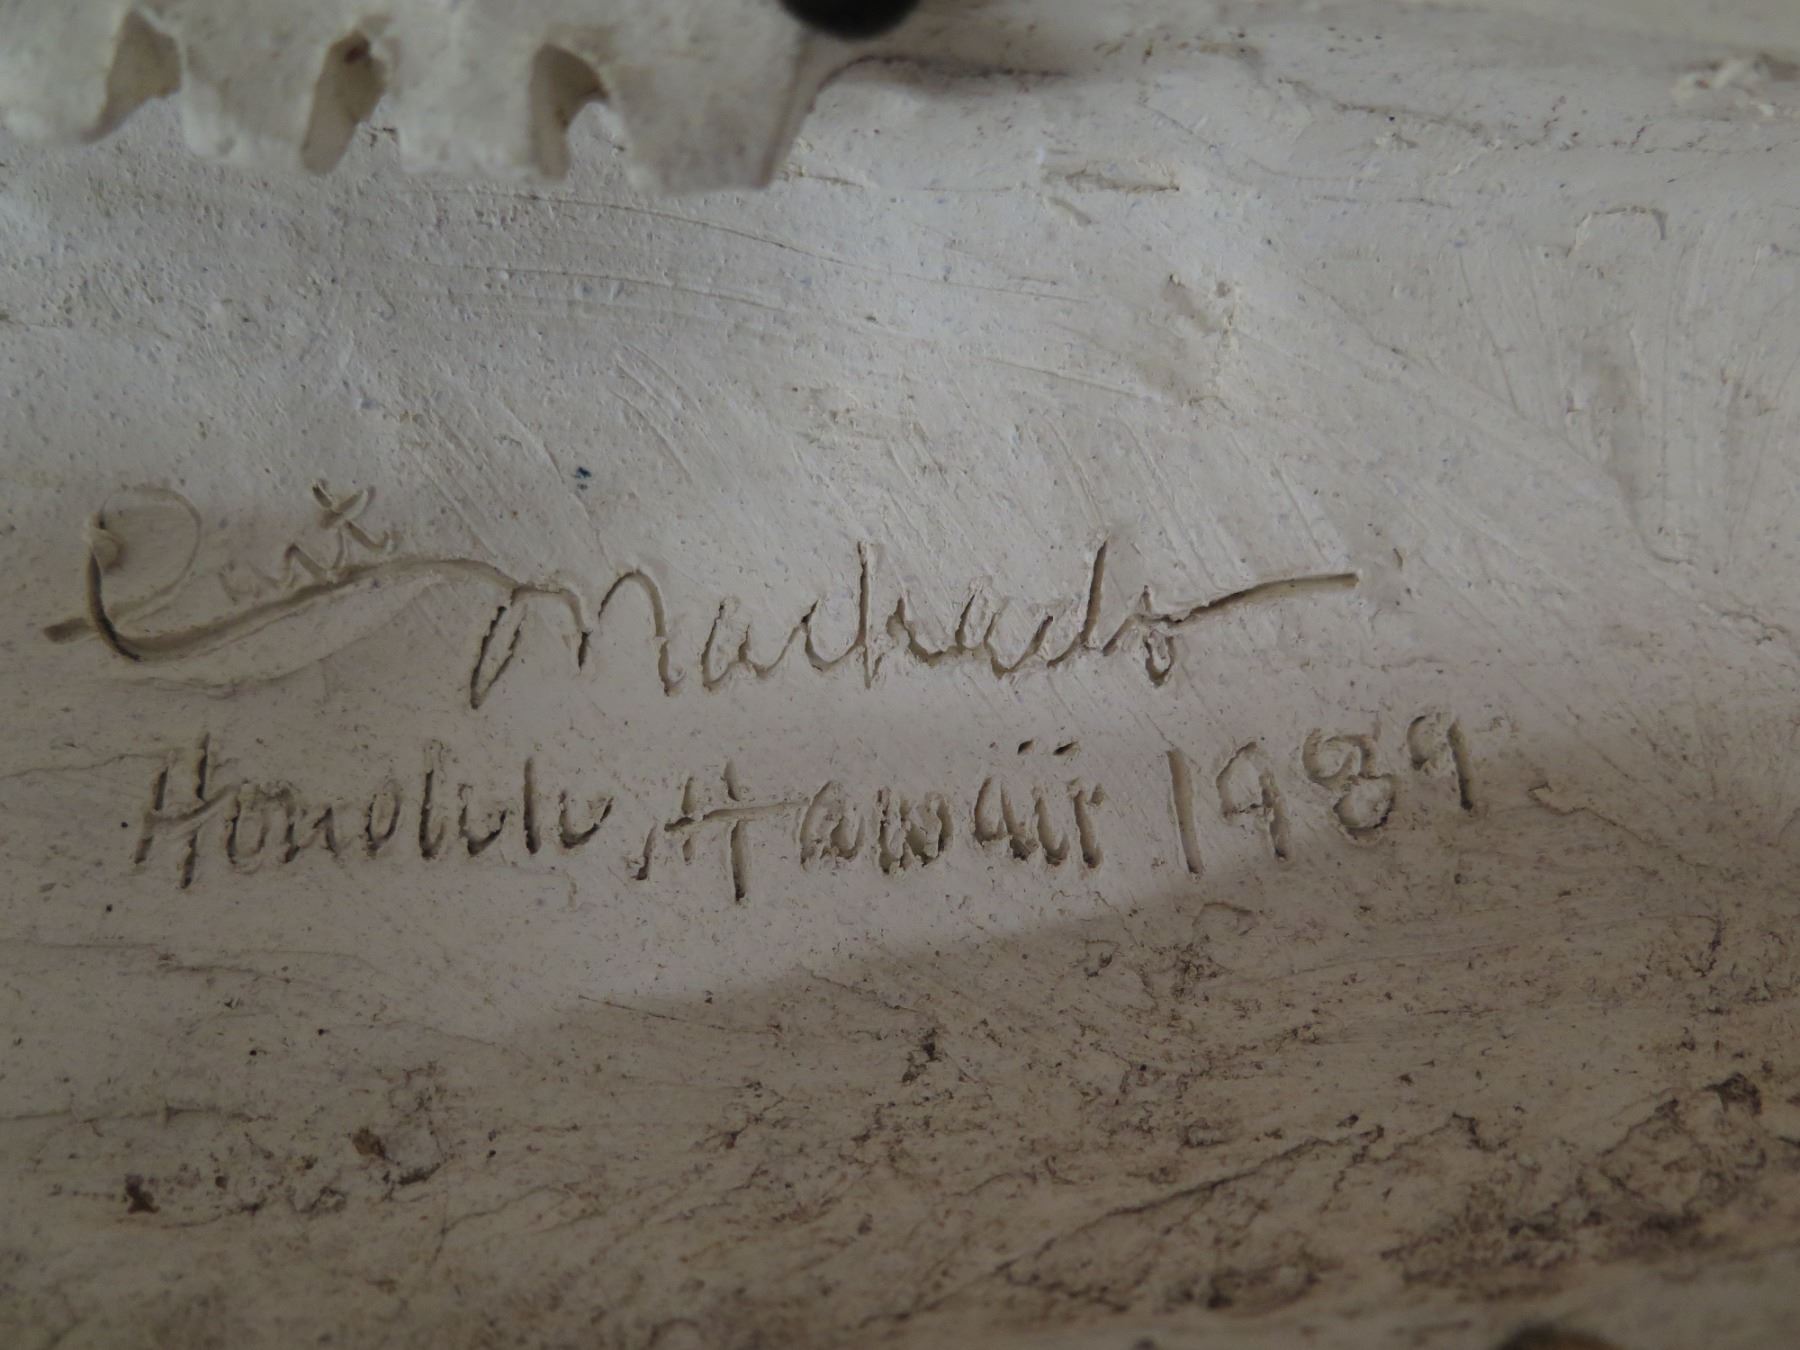 Machado
Honolulu, Hawaii 1989